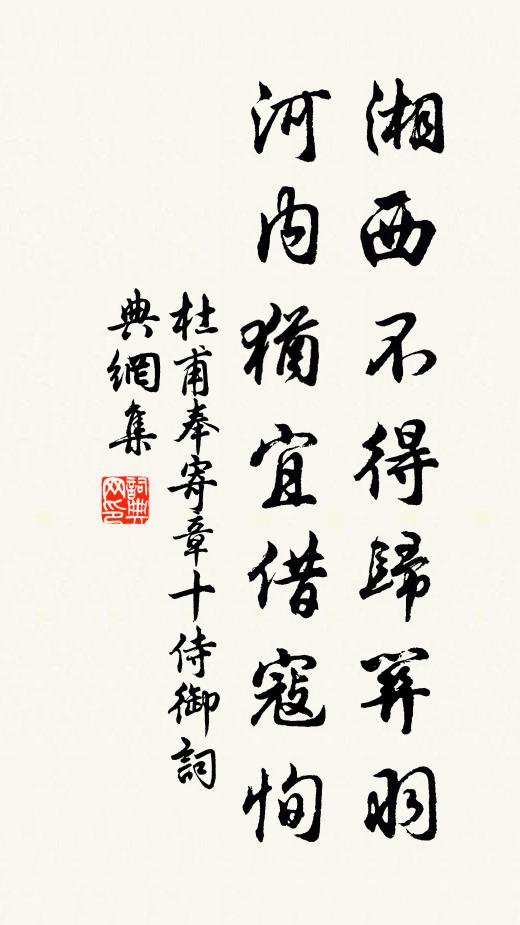 湘西不得歸關羽
河內猶宜借寇恂
杜甫奉寄章十侍御詞
典網集
詞典
网印